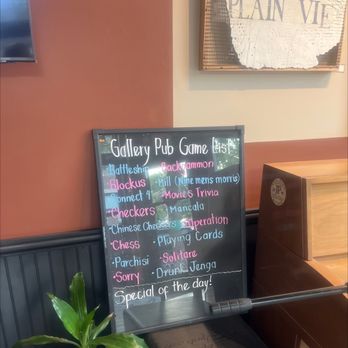 PLAIN VIE
Gallery Pub Game List
Battleship Backgammon
Blokus · Mill (Nine mens morris)
Connect 4 · Movie's Trivia
· Checkers · Mancala
· Chinese Checkers · Operation
· Chess · Playing Cards
· Parchisi · Solitare
· Sorry · Drunk Jenga
Special of the day!